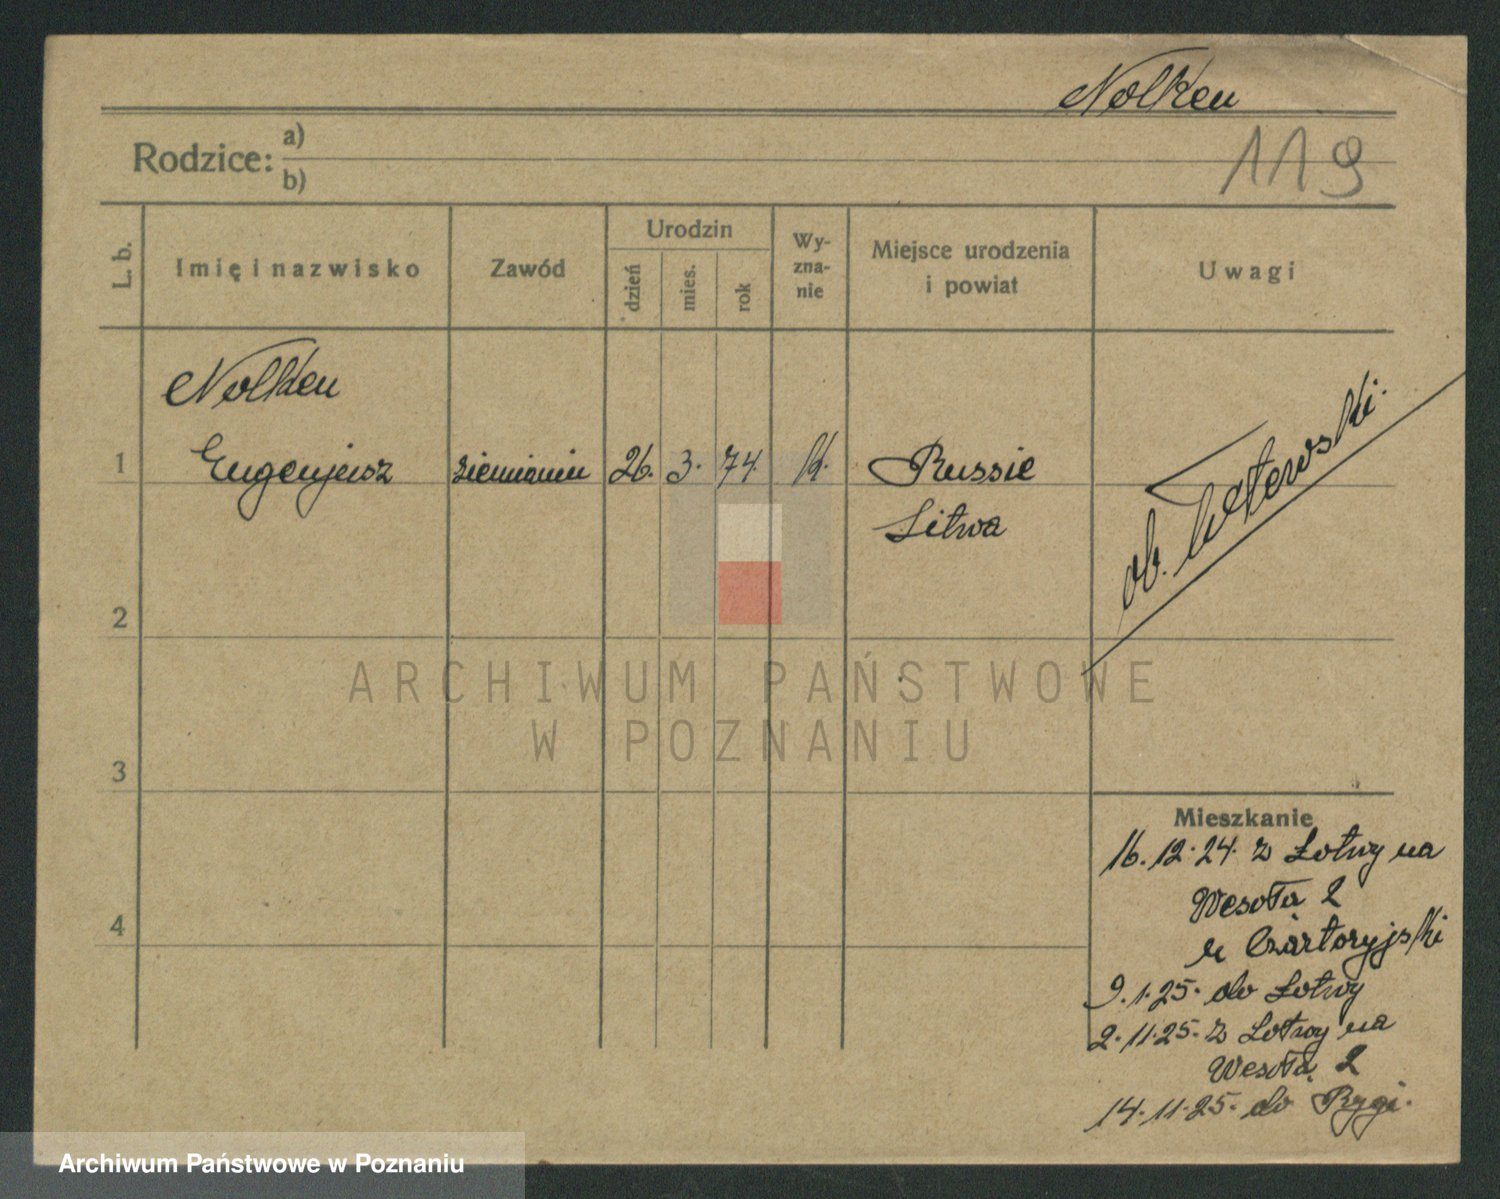 Nolken
119
Rodzice: a)
b)
L. b.
Imię i nazwisko
Zawód
Urodzin
dzień
mies.
rok
Wy-
zna-
nie
Miejsce urodzenia
i powiat
Uwagi
Nolken
1 Eugenjusz ziemianin 26. 3. 74. k. Russie
Litwa
ob. Łotewski.
2
3
4
ARCHIWUM PAŃSTWOWE
W POZNANIU
Mieszkanie
16.12.24. z Łotwy na
Wesoła 2
u Czartoryjski
9.1.25. do Łotwy
2.11.25. z Łotwy na
Wesołą 2
14.11.25. do Rygi.
Archiwum Państwowe w Poznaniu